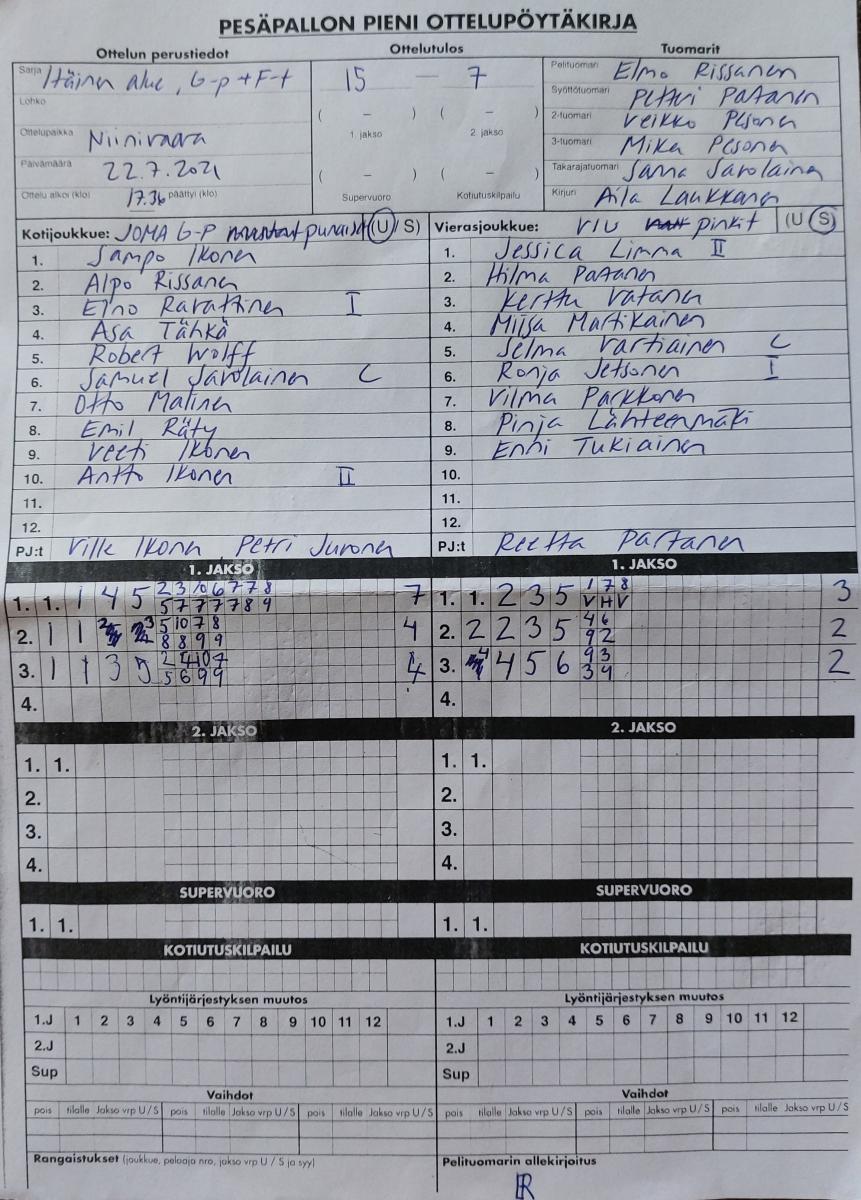 PESÄPALLON PIENI OTTELUPÖYTÄKIRJA
Ottelun perustiedot
Ottelutulos
Tuomarit
Sarja Itäinen alue, G-p + F-t
Lohko
Ottelupaikka Niinivaara
Päivämäärä 22.7.2021
Ottelu alkoi (klo) 17.36 päättyi (klo)
15 – 7
( – ) ( – )
1. jakso 2. jakso
( – ) ( – )
Supervuoro Kotiutuskilpailu
Pelituomari Elmo Rissanen
Syöttötuomari Petteri Patanen
2-tuomari Veikko Pesonen
3-tuomari Mika Pesonen
Takarajatuomari Sanna Savolainen
Kirjuri Aila Laukkanen
Kotijoukkue: JOMA G-P punaiset (U/S)
1. Sampo Ikonen
2. Alpo Rissanen
3. Eino Ravattinen I
4. Asa Tähkä
5. Robert Wolff
6. Samuel Savolainen C
7. Otto Malinen
8. Emil Räty
9. Veeti Ikonen
10. Antto Ikonen II
11.
12.
PJ:t Ville Ikonen Petri Juronen
Vierasjoukkue: ViU pinkit (U/S)
1. Jessica Limma II
2. Hilma Patanen
3. Kerttu Vatanen
4. Miisa Martikainen
5. Selma Vartiainen C
6. Ronja Jetsonen I
7. Vilma Parkkonen
8. Pinja Lähteenmäki
9. Enni Tukiainen
10.
11.
12.
PJ:t Reetta Partanen
1. JAKSO
1. 1. 1 4 5 2 3 10 6 7 7 8 7
5 7 7 7 7 8 9
2. 1 1 2 3 5 10 7 8 4
8 8 9 9
3. 1 1 3 5 2 4 10 7 4
5 6 9 9
4.
1. JAKSO
1. 1. 2 3 5 1 7 8 3
V H V
2. 2 2 3 5 4 6 2
9 2
3. 4 4 5 6 9 3 2
3 4
4.
2. JAKSO
1. 1.
2.
3.
4.
2. JAKSO
1. 1.
2.
3.
4.
SUPERVUORO
1. 1.
SUPERVUORO
1. 1.
KOTIUTUSKILPAILU
KOTIUTUSKILPAILU
Lyöntijärjestyksen muutos
1.J 1 2 3 4 5 6 7 8 9 10 11 12
2.J
Sup
Lyöntijärjestyksen muutos
1.J 1 2 3 4 5 6 7 8 9 10 11 12
2.J
Sup
Vaihdot
pois tilalle Jakso vrp U/S pois tilalle Jakso vrp U/S pois tilalle Jakso vrp U/S
Vaihdot
pois tilalle Jakso vrp U/S pois tilalle Jakso vrp U/S pois tilalle Jakso vrp U/S
Rangaistukset (joukkue, pelaaja nro, jakso vrp U / S ja syy)
Pelituomarin allekirjoitus
ER